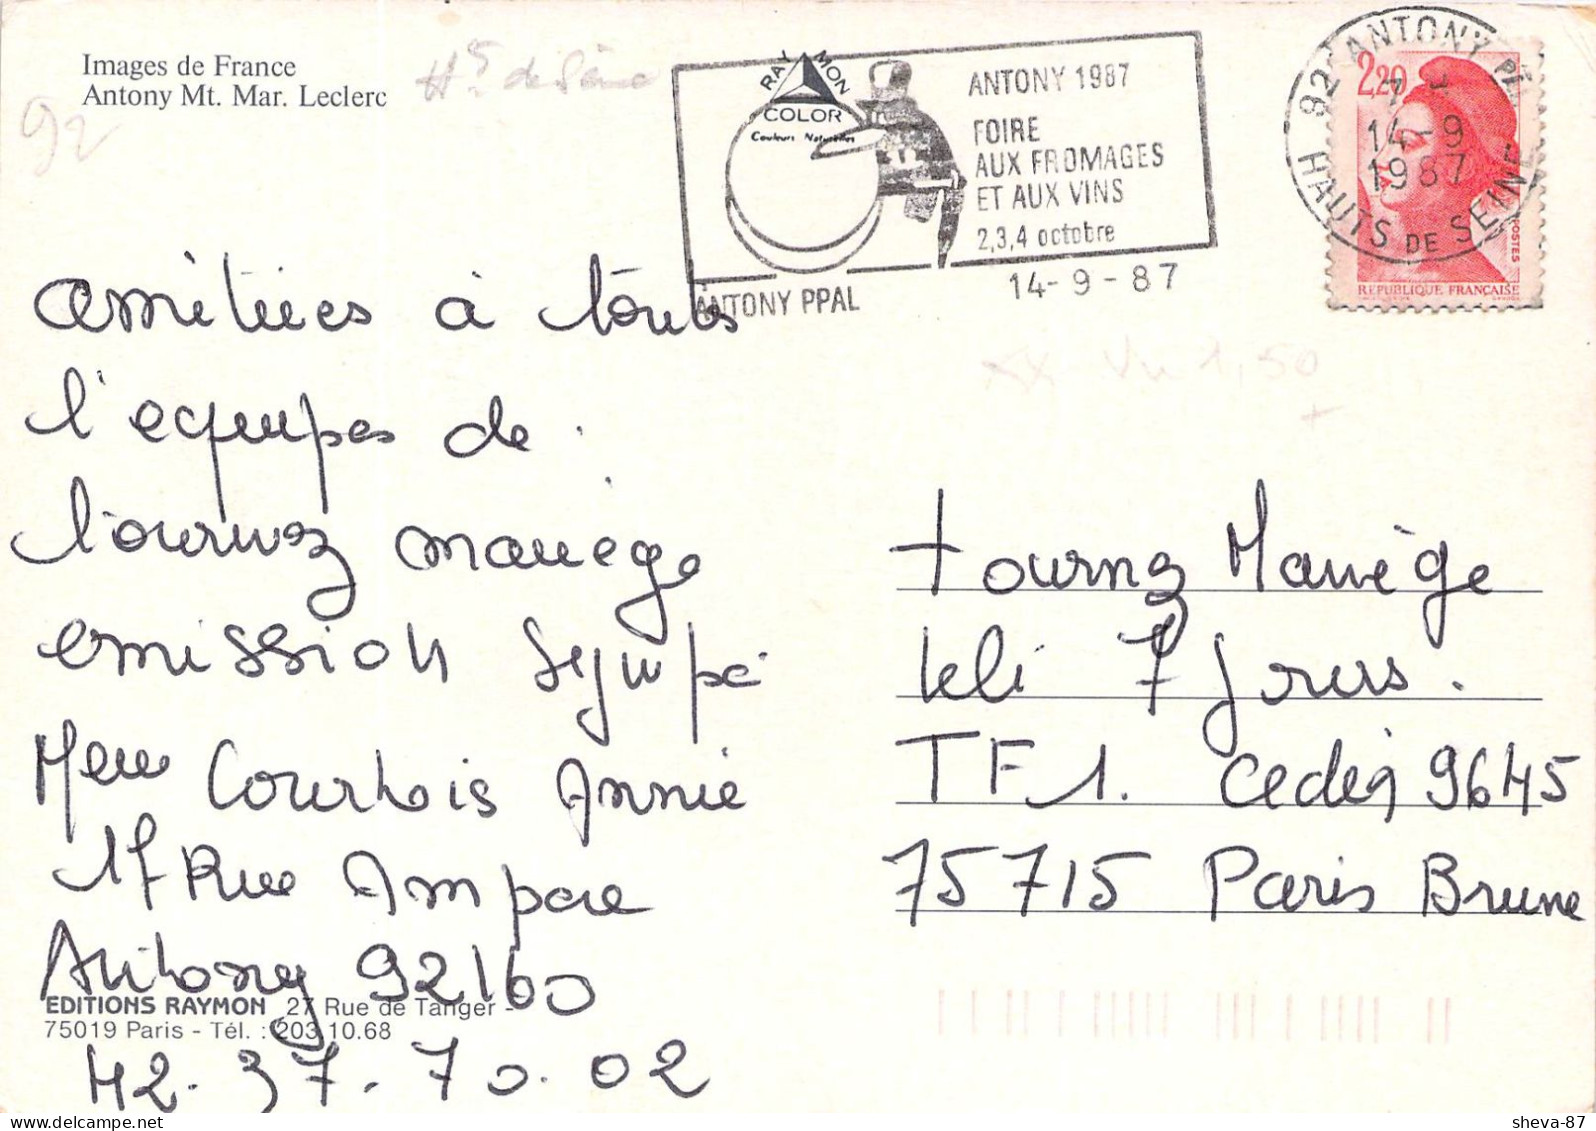 Images de France
Antony Mt. Mar. Leclerc
Hts de Seine
92
RAYMON
COLOR
Couleurs Naturelles
ANTONY 1987
FOIRE
AUX FROMAGES
ET AUX VINS
2,3,4 octobre
ANTONY PPAL
14-9-87
92 ANTONY PPAL
14-9
1987
HAUTS DE SEINE
2,20
POSTES
REPUBLIQUE FRANÇAISE
Vu 1,50
amitiées à touts
l'equipes de
tournez manège
emission sympé
Mme Courtois Annie
17 Rue Ampere
Antony 92160
42.37.70.02
EDITIONS RAYMON 27 Rue de Tanger -
75019 Paris - Tél. : 203.10.68
tournez Manège
teli 7 jours.
TF1. Cedex 9645
75715 Paris Brune
sheva-87